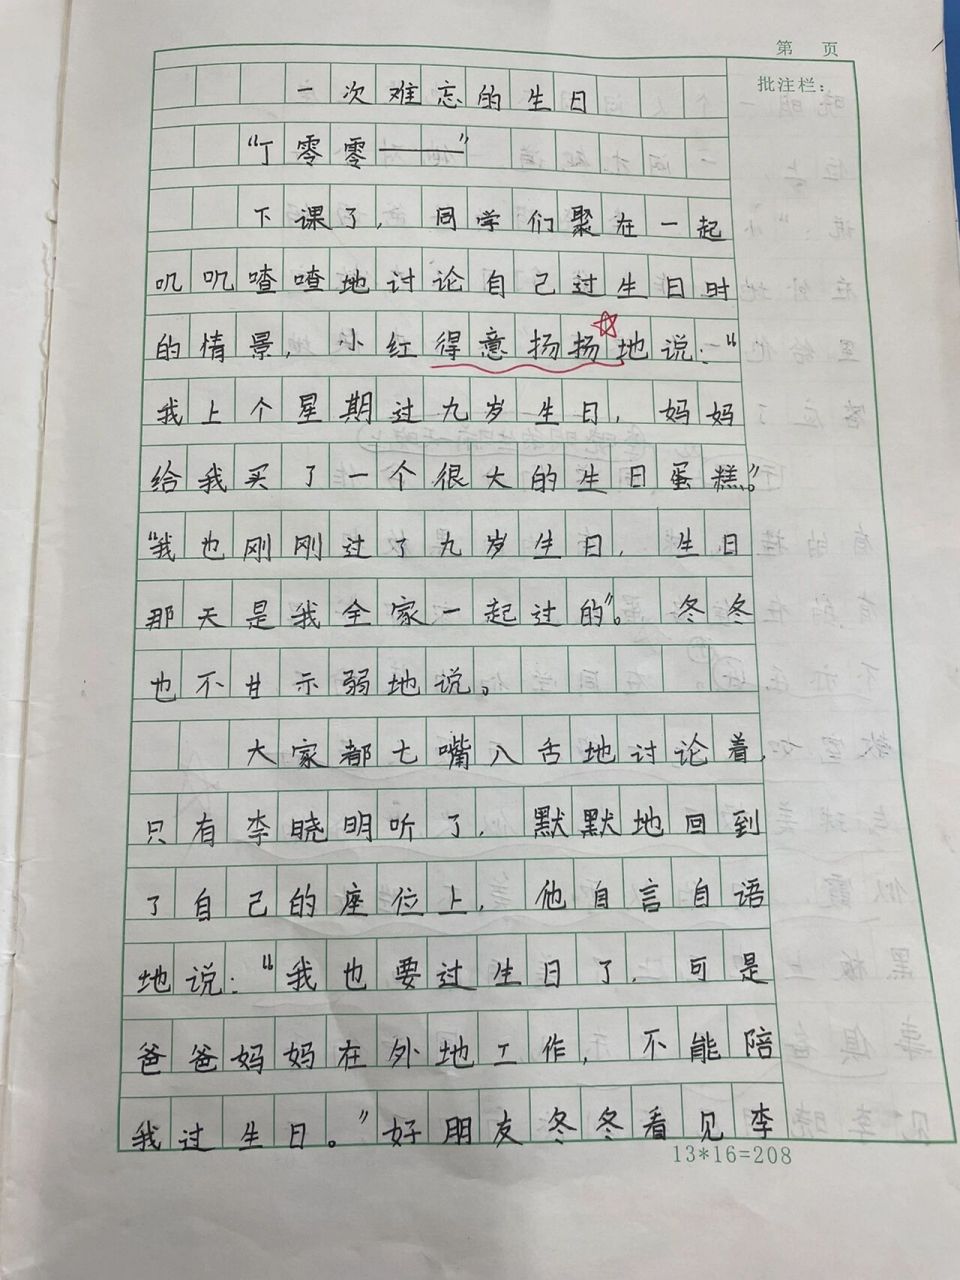 第 页
批注栏：
一次难忘的生日
“丁零零——”
下课了，同学们聚在一起
叽叽喳喳地讨论自己过生日时
的情景，小红得意扬扬地说：“
我上个星期过九岁生日，妈妈
给我买了一个很大的生日蛋糕。”
“我也刚刚过了九岁生日，生日
那天是我全家一起过的”。冬冬
也不甘示弱地说。
大家都七嘴八舌地讨论着，
只有李晓明听了，默默地回到
了自己的座位上，他自言自语
地说：“我也要过生日了，可是
爸爸妈妈在外地工作，不能陪
我过生日。”好朋友冬冬看见李
13*16=208